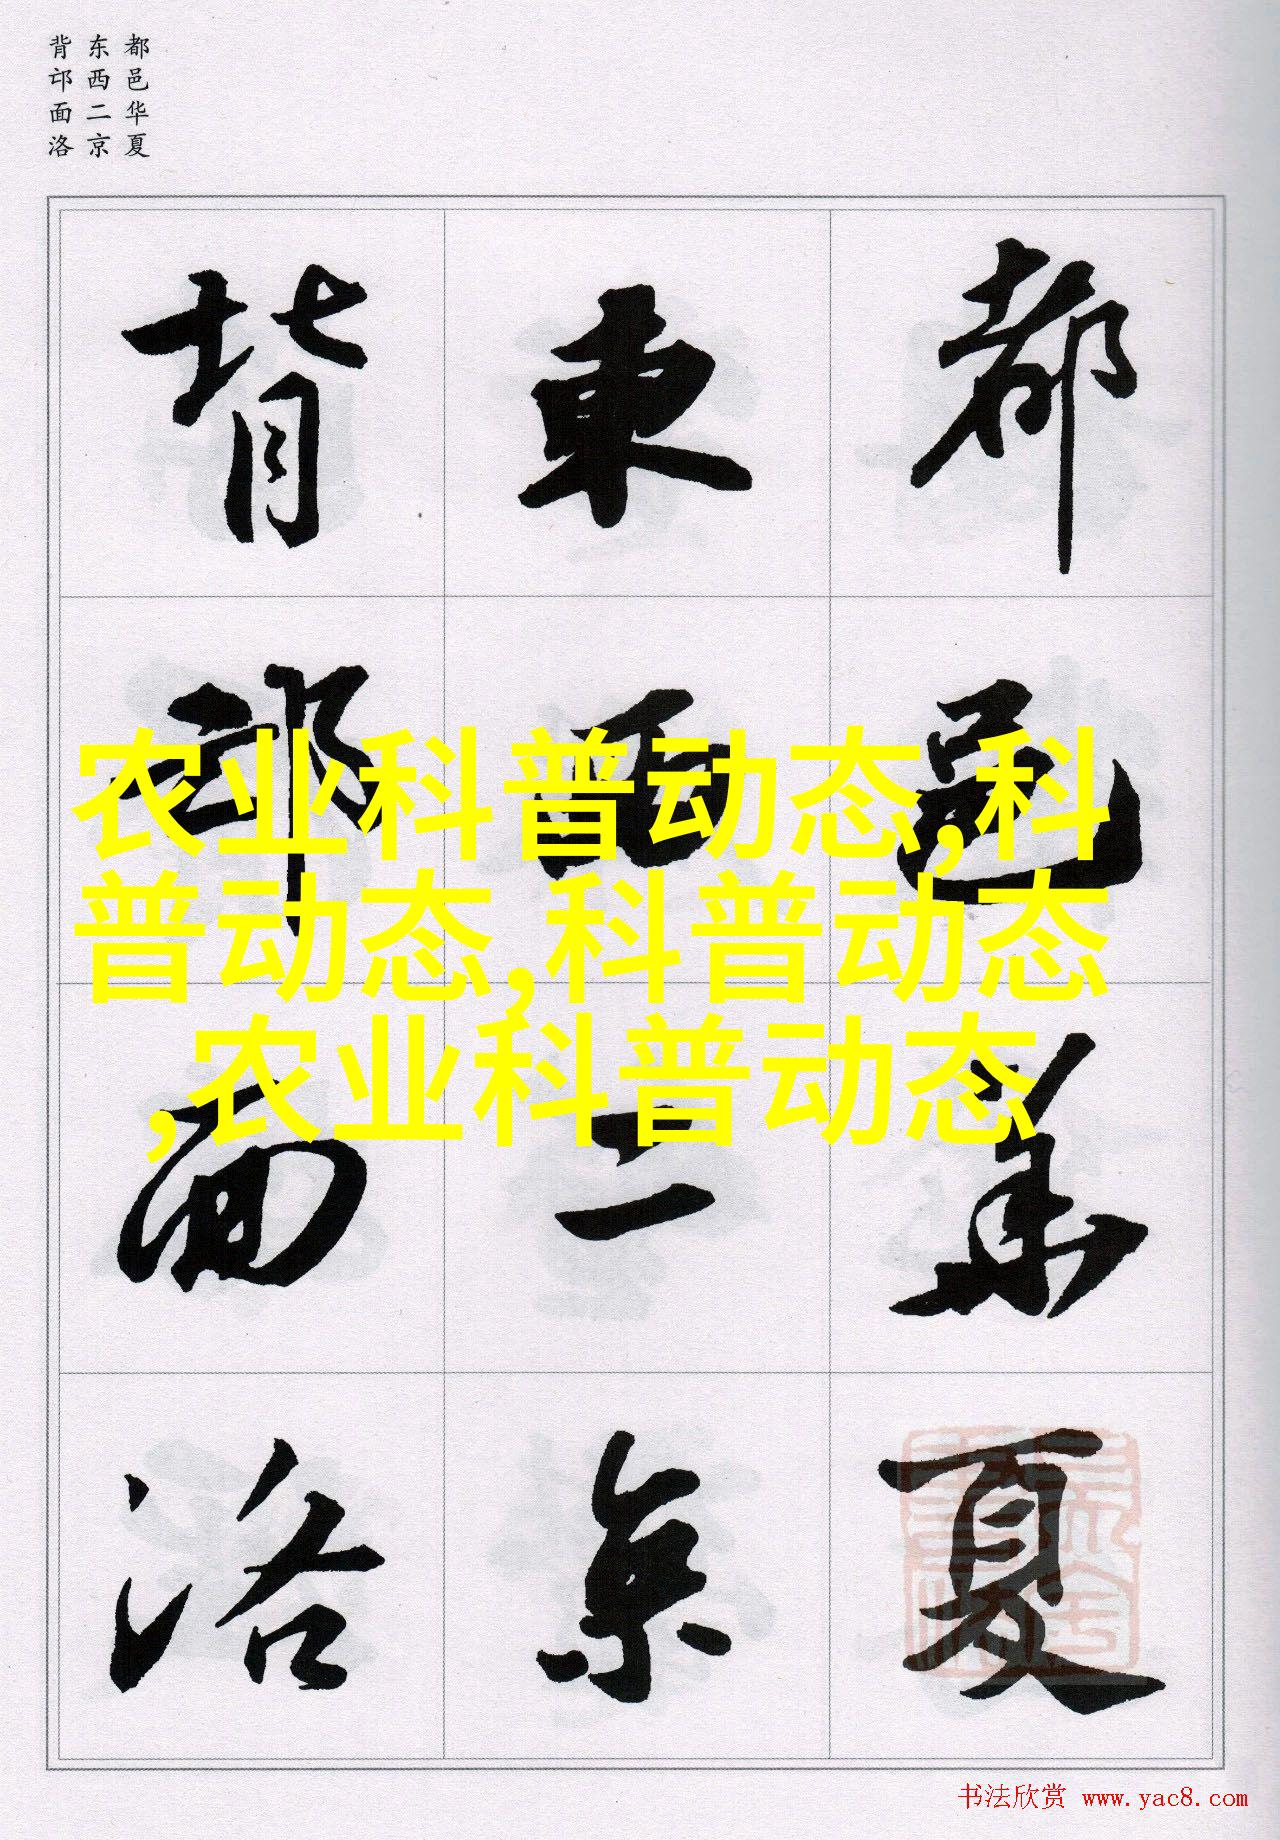 都邑华夏
东西二京
背邙面洛
都邑華夏
東西二京
背邙面洛
农业科普动态,科
普动态,科普动态
,农业科普动态
书法欣赏 www.yac8.com